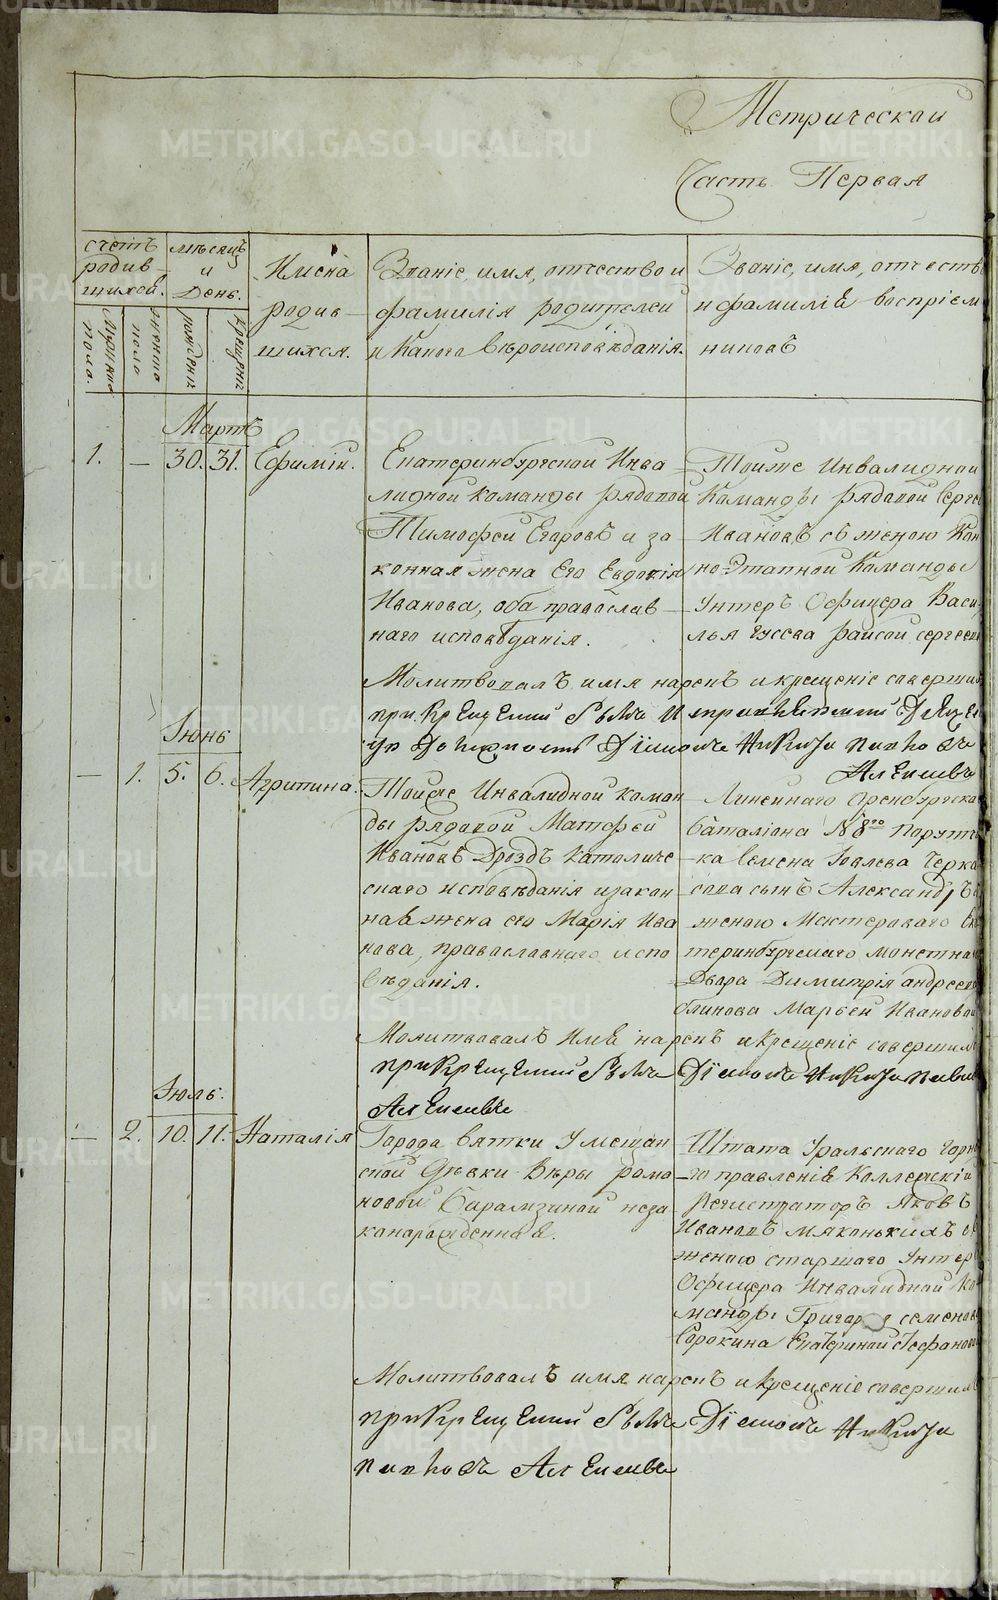 Метрической
Часть Первая
счетъ родив шихся.
мѣсяцъ и день.
Имена родив шихся.
Званіе, имя, отчество и фамилія родителей и какого вѣроисповѣданія.
Званіе, имя, отчеств и фамиліи воспріем никовъ
мужеска пола.
женска пола
рожденія
крещенія
Мартъ
1. — 30. 31. Ефимій.
Екатеринбургской Инва
лидной команды рядовой
Тимофей Егоровъ и за
конная жена Его Евдокія
Иванова, оба православ
наго исповѣданія.
Тойже Инвалидной
Команды рядовой Серге
Ивановъ съ женою Кон
но-Этапной Команды
Унтеръ Офицера Васи
лья Гусева Раисой Сергеев
Молитвовалъ имя нарекъ и крещеніе совершил
при Крещении былъ и
Діаконъ Никита
Алексеивъ
Іюнь
— 1. 5. 6. Агрипина.
Тойже Инвалидной коман
ды рядовой Матфей
Ивановъ Дроздъ католиче
скаго исповѣданія и закон
ная жена его Марія Ива
нова, православнаго испо
вѣданія.
Линейнаго Оренбургска
баталіона №8го Поручи
ка Семена Іовлева Черка
сова сынъ Александръ с
женою Мастероваго Ек
теринбургскаго монетна
Двора Димитрія Андрее
блинова Марьей Ивановой
Молитвовалъ Имя нарекъ и крещеніе совершил
при Крещении былъ Діаконъ Никита
Алексеивъ
Іюль.
— 2. 10. 11. Наталія
Города Вятки Умещан
ской Дѣвки Вѣры Рома
новой Барамзиной неза
конорожденная.
Штата Уральскаго Горн
го правленія Коллежскій
Регистраторъ Яковъ
Ивановъ Мяконькихъ с
женою старшаго Унтер
Офицера Инвалидной Ко
манды Григорья Семенов
Сорокина Екатериной Стефанов
Молитвовалъ имя нарекъ и крещеніе совершил
при Крещении былъ Діаконъ Никита
Алексеивъ
METRIKI.GASO-URAL.RU